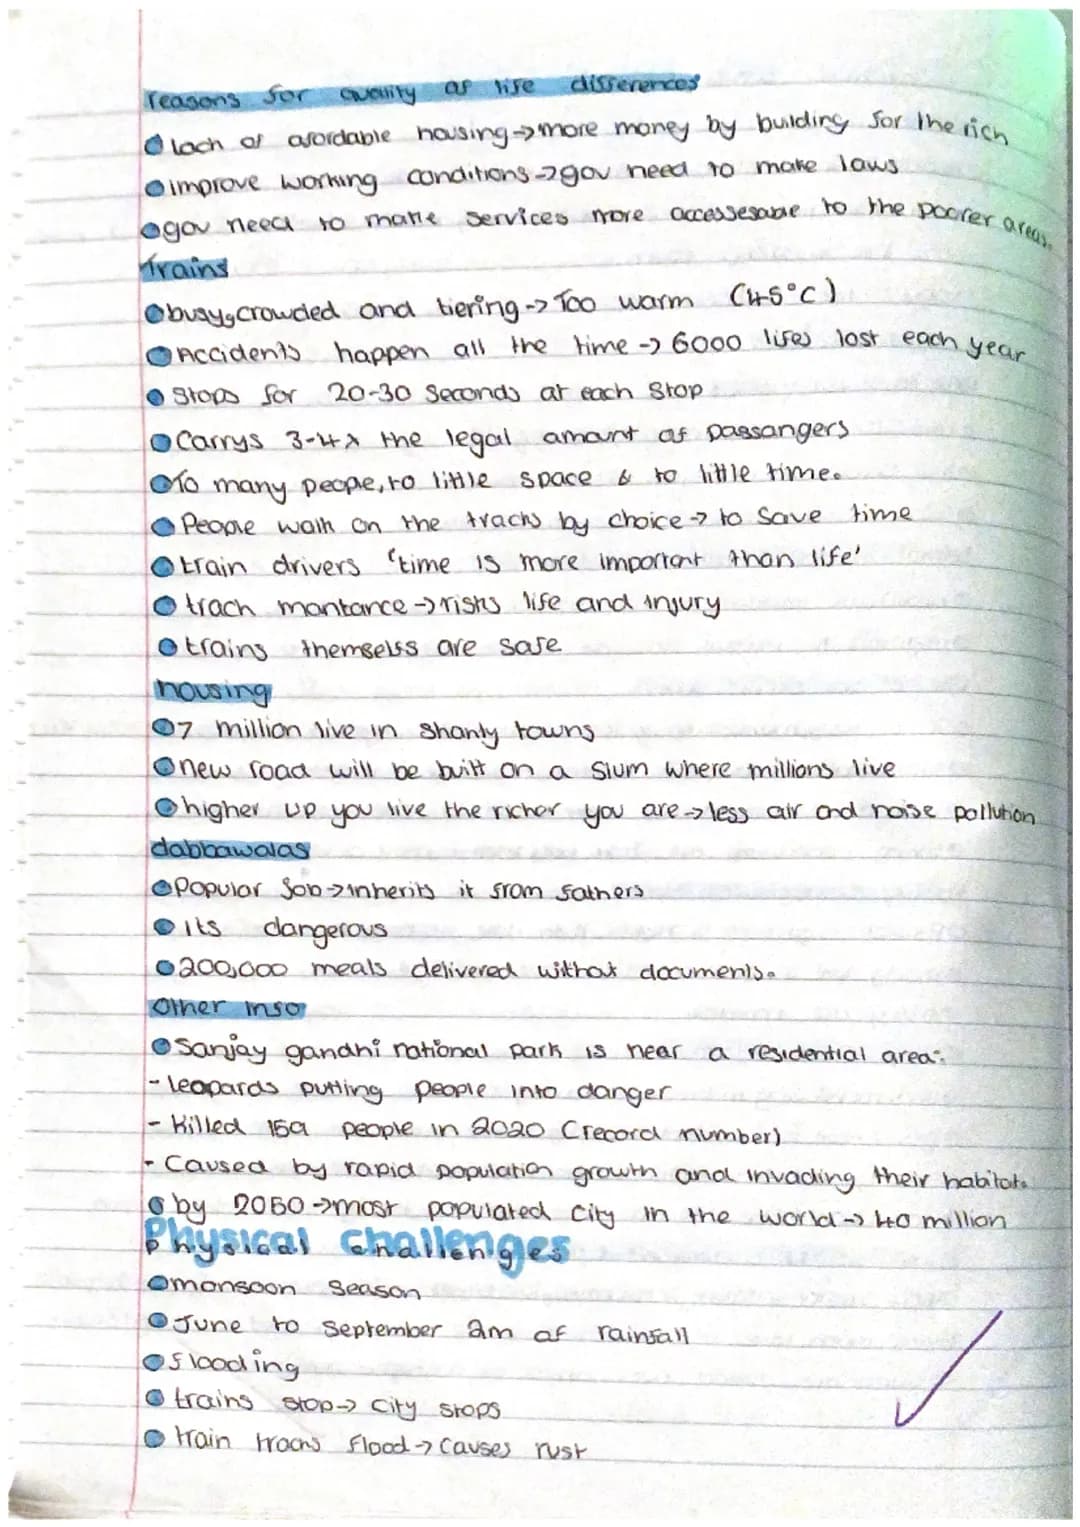 reasons for quality of life differences
lack of afordable housing→more money by building for the rich
improve working conditions→gov need to make laws
gov need to make services more accessesable to the poorer areas.
Trains
busy, crowded and tiering→Too warm (45°C)
Accidents happen all the time→6000 lifes lost each year
Stops for 20-30 seconds at each stop
Carrys 3-4x the legal amount of passangers
To many people, to little space & to little time.
People walk on the tracks by choice→to save time
train drivers 'time is more important than life'
track mantance→risks life and injury
trains themselfs are safe
housing
7 million live in shanty towns
new road will be built on a slum where millions live
higher up you live the richer you are→less air and noise pollution
dabbawalas
Popular job→inherits it from fathers
its dangerous
200,000 meals delivered without documents.
Other info
Sanjay gandhi national park is near a residential area:
- leopards putting people into danger
- Killed people in 2020 (record number)
- Caused by rapid population growth and invading their habitat.
by 2050→most populated city in the world→40 million
Physical challenges
monsoon season
June to September 2m of rainfall
flooding
trains stop→city stops
train tracks flood→causes rust